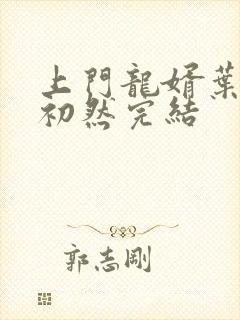 上門龍婿葉
初然完結
郭志剛